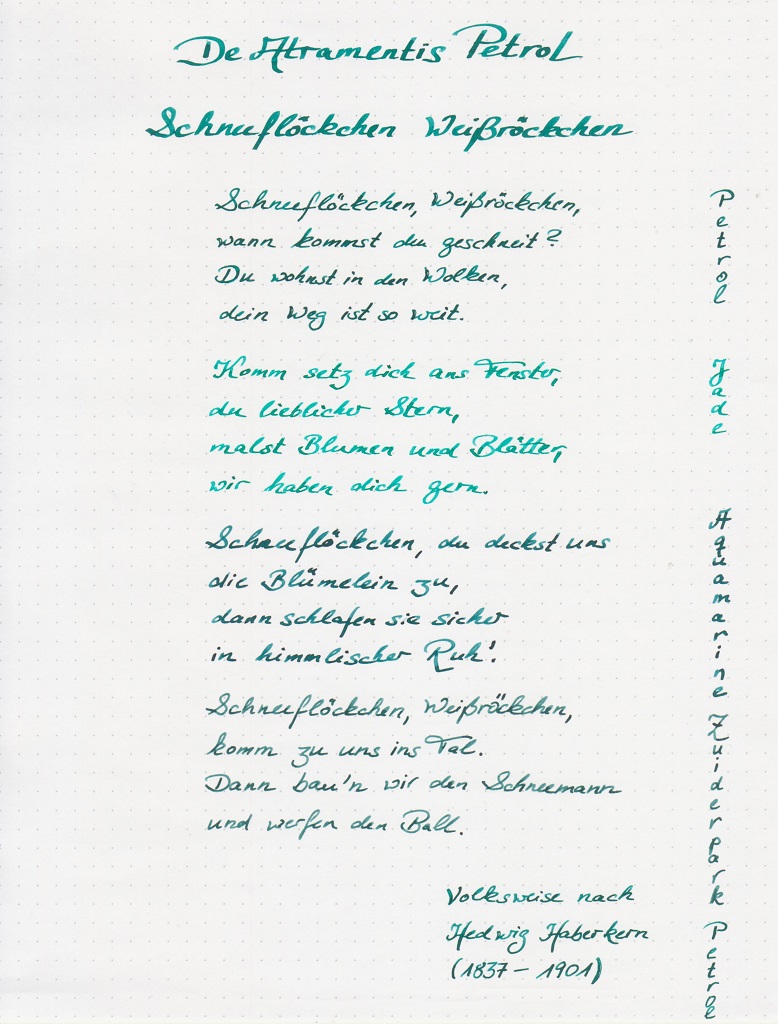 De Atramentis Petrol
Schneeflöckchen Weißröckchen
Schneeflöckchen, Weißröckchen,
wann kommst du geschneit?
Du wohnst in den Wolken,
dein Weg ist so weit.
Komm setz dich ans Fenster,
du lieblicher Stern,
malst Blumen und Blätter,
wir haben dich gern.
Schneeflöckchen, du deckst uns
die Blümelein zu,
dann schlafen sie sicher
in himmlischer Ruh'.
Schneeflöckchen, Weißröckchen,
komm zu uns ins Tal.
Dann bau'n wir den Schneemann
und werfen den Ball.
Volksweise nach
Hedwig Haberkern
(1837 – 1901)
Petrol
Jade
Aquamarine
Zuiderpark
Petrol